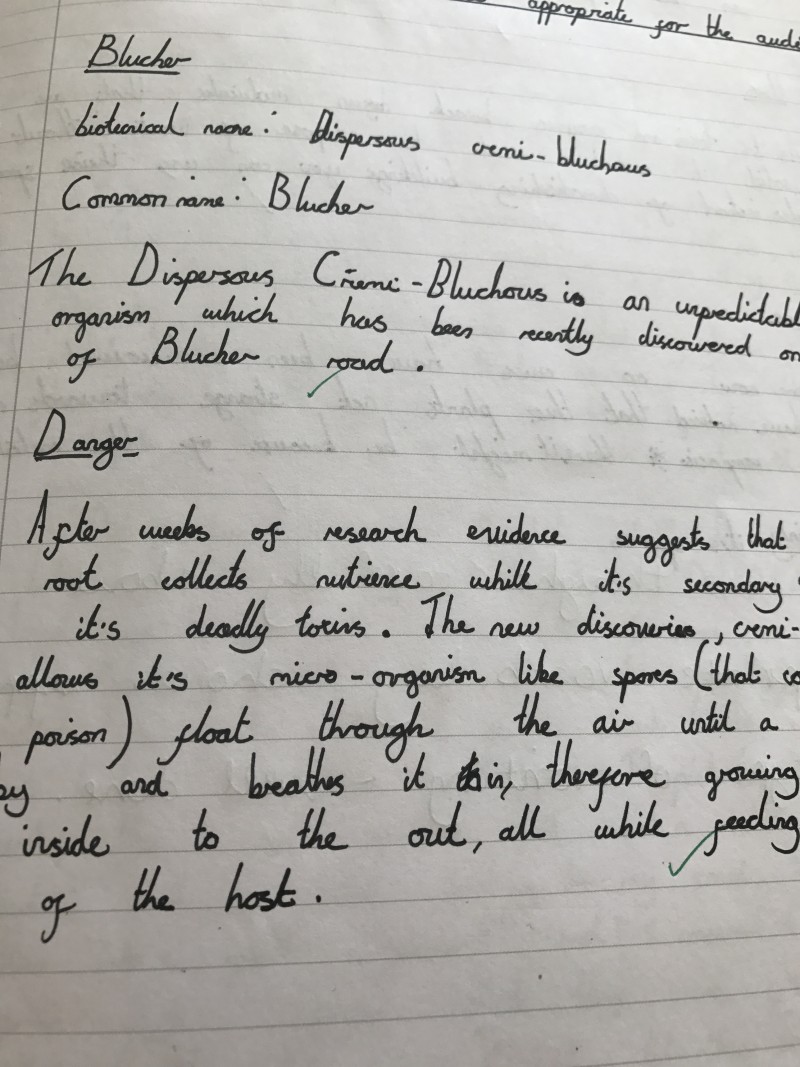 appropriate for the audi
Blucher
biotecnical name: Dispersous cremi-bluchous
Common name: Blucher
The Dispersous Cremi-Bluchous is an unpredictabl
organism which has been recently discovered on
of Blucher road.
Danger
After weeks of research evidence suggests that
root collects nutrience whilt it's secondary
it's deadly toxins. The new discoveries, cremi-
allows it's micro-organism like spores (that co
poison) float through the air until a
by and breathes it in, therefore growing
inside to the out, all while feeding
of the host.